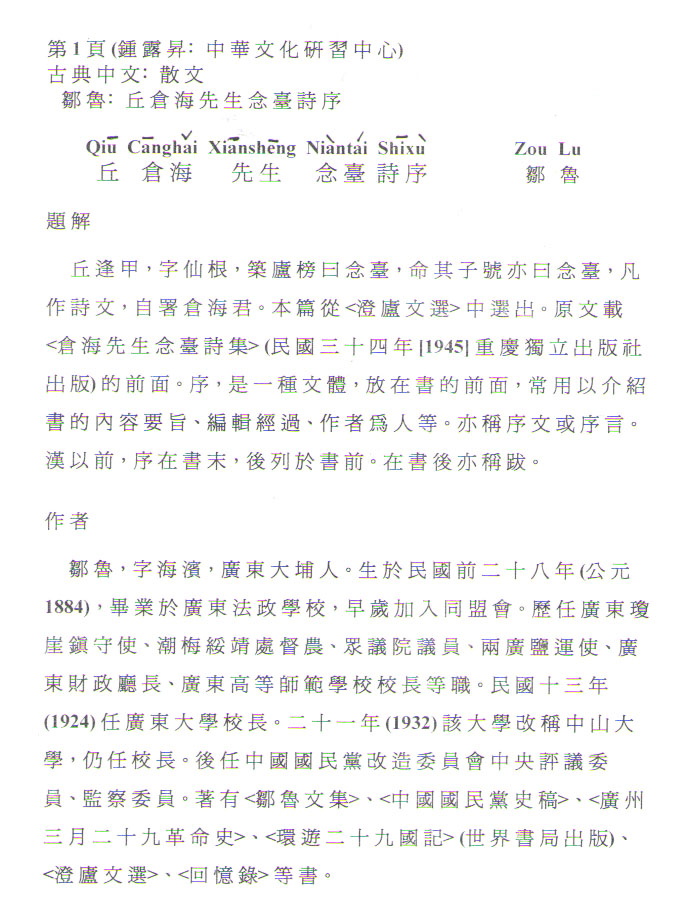 第1頁(鍾露昇: 中華文化研習中心)
古典中文: 散文
鄒魯: 丘倉海先生念臺詩序
Qiū Cānghǎi Xiānshēng Niàntái Shīxù Zou Lu
丘 倉海 先生 念臺詩序 鄒 魯
題解
丘逢甲，字仙根，築廬榜曰念臺，命其子號亦曰念臺，凡
作詩文，自署倉海君。本篇從<澄廬文選>中選出。原文載
<倉海先生念臺詩集>(民國三十四年[1945]重慶獨立出版社
出版)的前面。序，是一種文體，放在書的前面，常用以介紹
書的內容要旨、編輯經過、作者爲人等。亦稱序文或序言。
漢以前，序在書末，後列於書前。在書後亦稱跋。
作者
鄒魯，字海濱，廣東大埔人。生於民國前二十八年(公元
1884)，畢業於廣東法政學校，早歲加入同盟會。歷任廣東瓊
崖鎮守使、潮梅綏靖處督農、眾議院議員、兩廣鹽運使、廣
東財政廳長、廣東高等師範學校校長等職。民國十三年
(1924)任廣東大學校長。二十一年(1932)該大學改稱中山大
學，仍任校長。後任中國國民黨改造委員會中央評議委
員、監察委員。著有<鄒魯文集>、<中國國民黨史稿>、<廣州
三月二十九革命史>、<環遊二十九國記>(世界書局出版)、
<澄廬文選>、<回憶錄>等書。